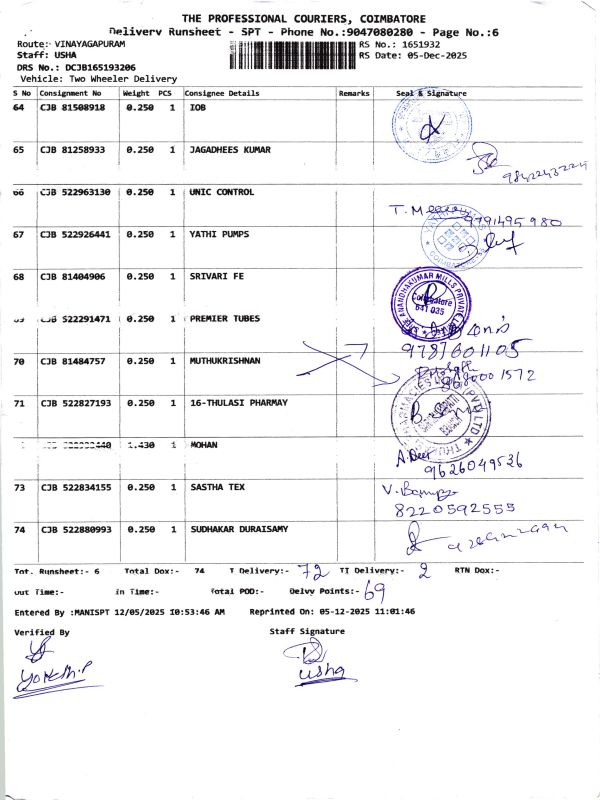 THE PROFESSIONAL COURIERS, COIMBATORE
Delivery Runsheet - SPT - Phone No.:9047080280 - Page No.:6
Route:- VINAYAGAPURAM RS No.: 1651932
Staff: USHA RS Date: 05-Dec-2025
DRS No.: DCJB165193206
Vehicle: Two Wheeler Delivery
S No Consignment No Weight PCS Consignee Details Remarks Seal & Signature
64 CJB 81508918 0.250 1 IOB
65 CJB 81258933 0.250 1 JAGADHEES KUMAR
66 CJB 522963130 0.250 1 UNIC CONTROL
9791495980
67 CJB 522926441 0.250 1 YATHI PUMPS
68 CJB 81404906 0.250 1 SRIVARI FE
Coimbatore
641 035
CJB 522291471 0.250 1 PREMIER TUBES
9787601105
70 CJB 81484757 0.250 1 MUTHUKRISHNAN
71 CJB 522827193 0.250 1 16-THULASI PHARMAY
1.430 1 MOHAN
9626049536
73 CJB 522834155 0.250 1 SASTHA TEX
8220592555
74 CJB 522880993 0.250 1 SUDHAKAR DURAISAMY
Tot. Runsheet:- 6 Total Dox:- 74 T Delivery:- 72 TI Delivery:- 2 RTN Dox:-
out Time:- in Time:- Total POD:- Delvy Points:- 69
Entered By :MANISPT 12/05/2025 10:53:46 AM Reprinted On: 05-12-2025 11:01:46
Verified By Staff Signature
usha